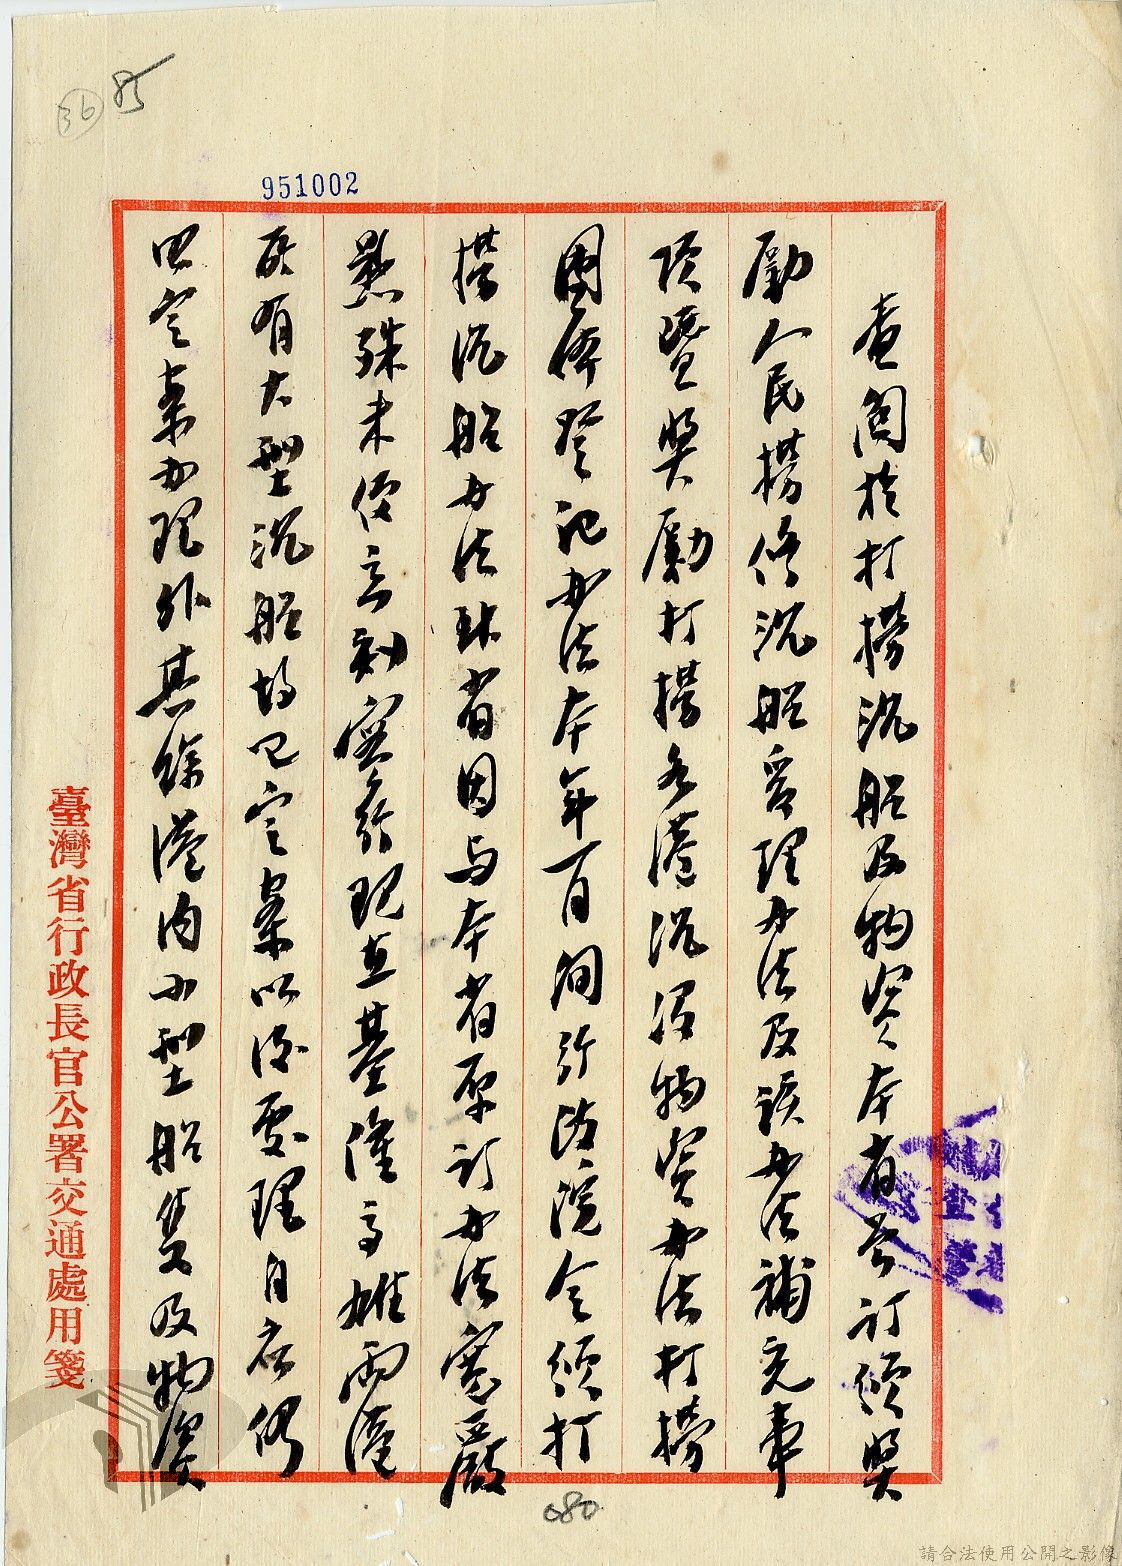 36
85
951002
查關於打撈沉船及物資本省前訂頒獎
勵人民撈修沉船管理办法及該办法補充事
項暨獎勵打撈各港沉沒物資办法打撈
團體登記办法本年一月間行政院令頒打
撈沉船办法到省因与本省原訂办法寬嚴
懸殊未便立刻實行現在基隆高雄兩港
所有大型沉船均已定案以後處理自应仍
照定案办理外其餘港内小型船隻及物資
臺灣省行政長官公署交通處用箋
080
請合法使用公開之影像